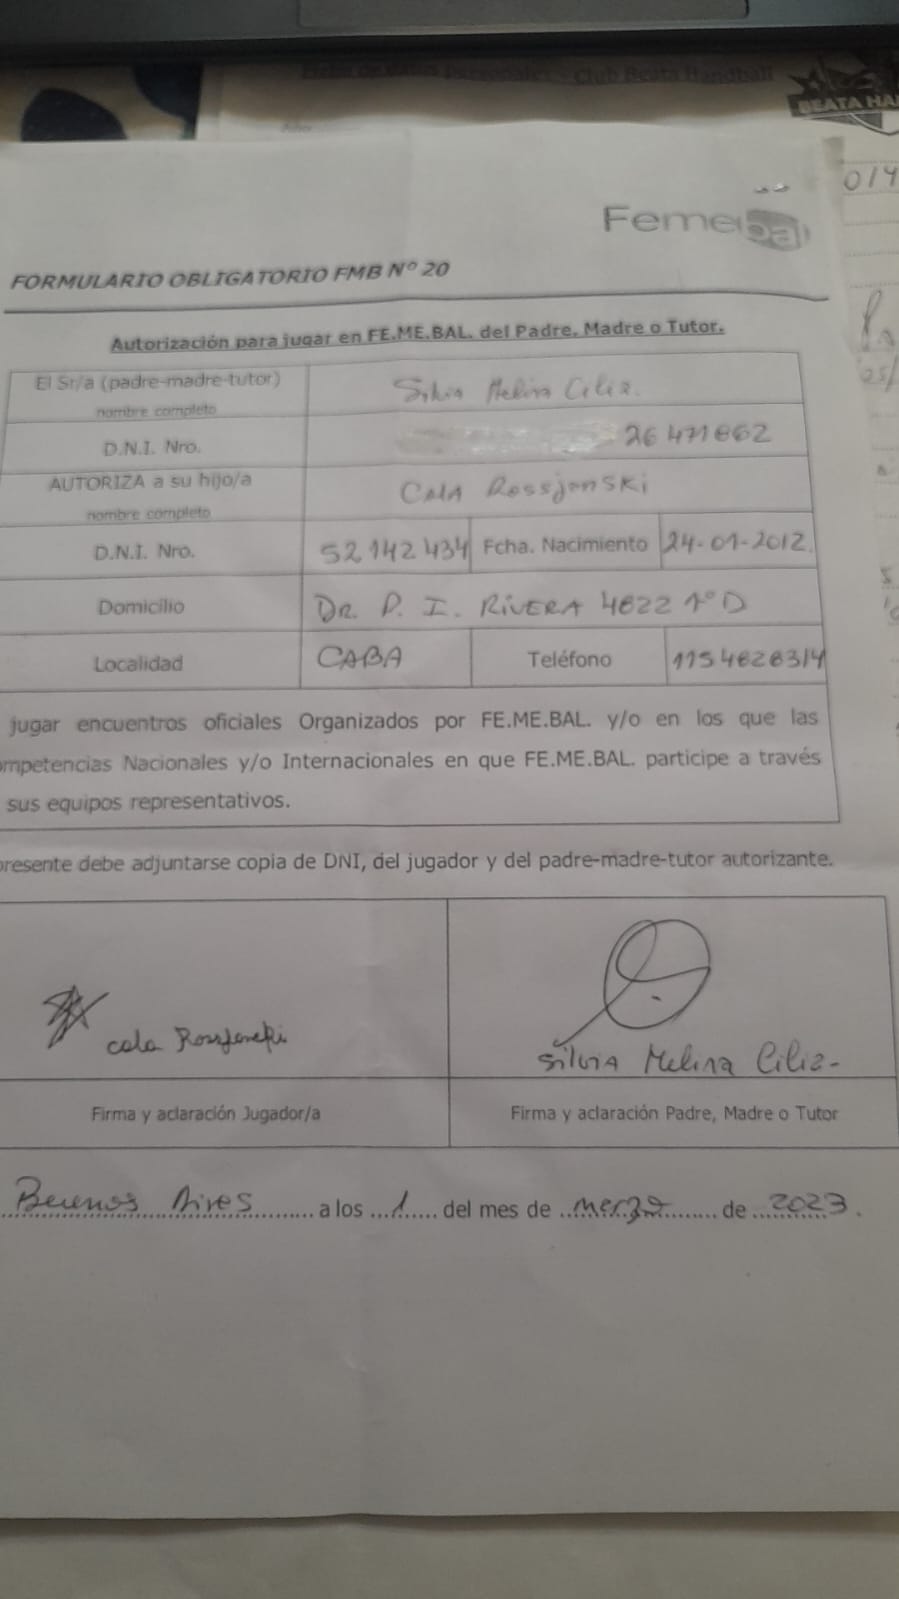 Club Beata Handball
BEATA HA
014
Femebal
FORMULARIO OBLIGATORIO FMB Nº 20
Autorización para jugar en FE.ME.BAL. del Padre, Madre o Tutor.
El Sr/a (padre-madre-tutor)
nombre completo
Silvia Melina Ciliz.
D.N.I. Nro.
26 471 862
AUTORIZA a su hijo/a
nombre completo
Cala Rossjanski
D.N.I. Nro.
52 142 434
Fcha. Nacimiento
24-01-2012.
Domicilio
DR. P. I. RIVERA 4822 1º D
Localidad
CABA
Teléfono
1154828314
jugar encuentros oficiales Organizados por FE.ME.BAL. y/o en los que las
ompetencias Nacionales y/o Internacionales en que FE.ME.BAL. participe a través
sus equipos representativos.
presente debe adjuntarse copia de DNI, del jugador y del padre-madre-tutor autorizante.
cala Rossjanski
Silvia Melina Ciliz-
Firma y aclaración Jugador/a
Firma y aclaración Padre, Madre o Tutor
Buenos Aires a los 1 del mes de marzo de 2023.